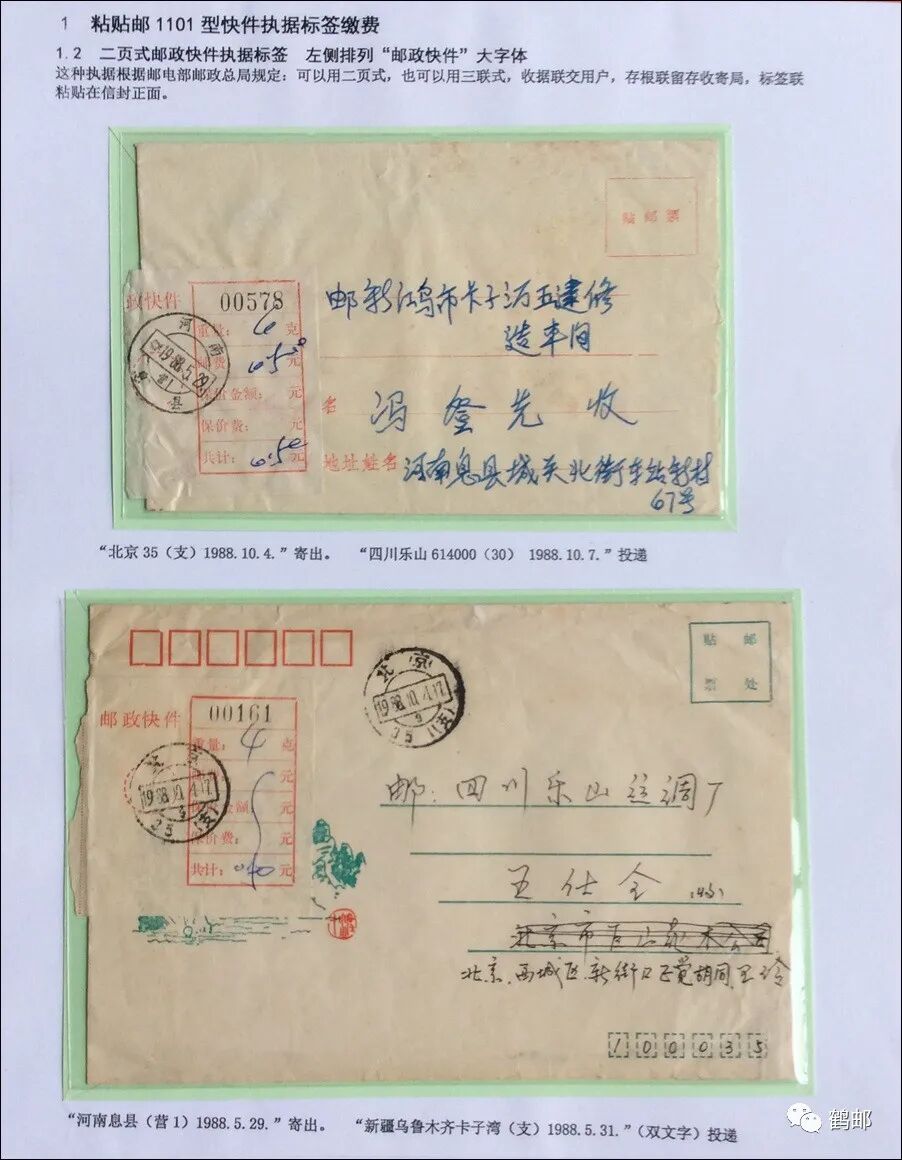 1 粘贴邮1101型快件执据标签缴费
1.2 二页式邮政快件执据标签 左侧排列“邮政快件”大字体
这种执据根据邮电部邮政总局规定：可以用二页式，也可以用三联式，收据联交用户，存根联留存收寄局，标签联
粘贴在信封正面。
贴 邮 票
政快件
00578
重量： 克
邮费 0.50 元
保价金额： 元
保价费： 元
共计： 0.50 元
河南
息县
1988.5.29
邮 市卡子沥五建修
造车间
名 冯登先 收
地址姓名 河南息县城关北街车站新村
67号
“北京35（支）1988.10.4.”寄出。 “四川乐山614000（30） 1988.10.7.”投递
贴 邮
票 处
北京
1988.10.4.17
35（支）
邮政快件
00161
重量： 4 克
元
金额 元
保价费： 元
共计： 元
北京
1988.10.4.17
35（支）
邮：四川乐山 调厂
王仕全
北京市
北京.西城区.新街口正觉胡同
100035
“河南息县（营1）1988.5.29.”寄出。 “新疆乌鲁木齐卡子湾（支）1988.5.31.”（双文字）投递
鹤邮